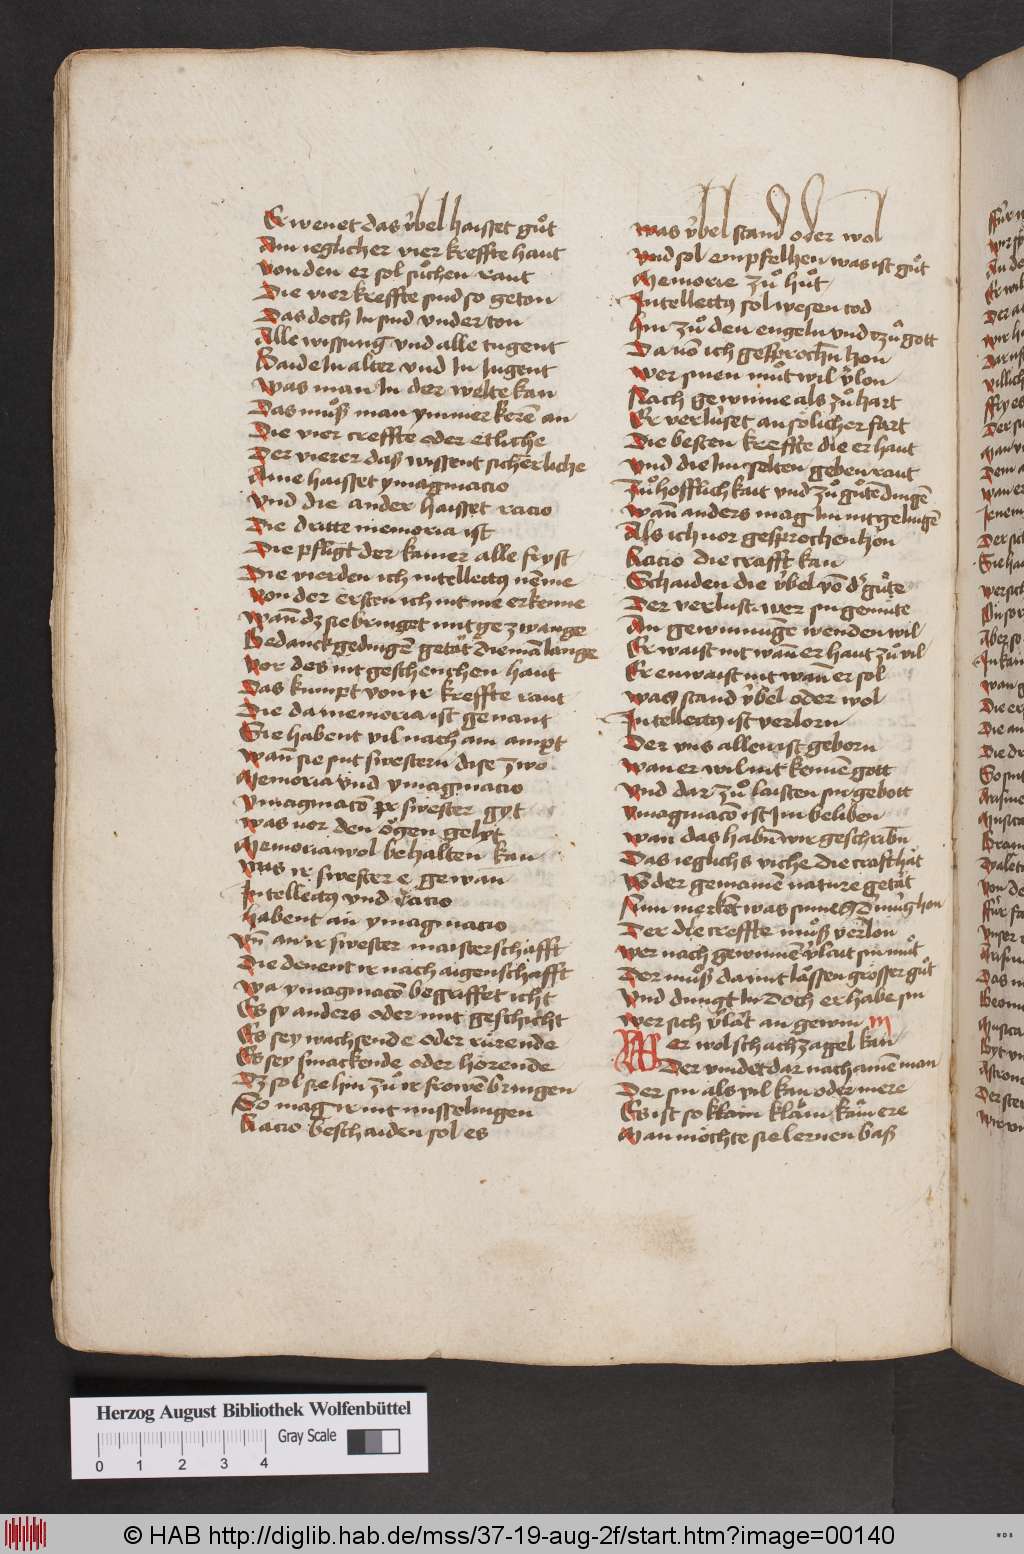 Er wenet das v̂bel haisset gůt
Ain ieglicher vier kreffte haut
Von den er sol sůchen raut
Die vier kreffte sind so geton
Das doch In sind vnder ton
Alle wissung vnd alle tugent
Baide In alter vnd In Iugent
Was man In der welte kan
Das můß man ymmer kerē an
Die vier creffte oder etliche
Der vierer daß wissent sicherliche
Aine haisset ymaginacio
Vnd die ander haisset racio
Die dritte memoria ist
Die pfligt der kamer alle fryst
Die vierden ich intellectus nēme
Von der ersten ich nit me erkenne
Wañ dz sie bringet mit gezwange
Gedanck gedingēn getät die man lange
Vor des nit geschenchen haut
Das kumpt von ir kreffte raut
Die da memoria ist genant
Sie habent vil nach ain ampt
Wañ sie sint swestern dise zwo
Memoria vnd ymaginacio
Ymaginacō ir swester gyt
Was vor den ögen gelyt
Memoria wol behalten kan
Was ir swester e gewan
Intellectus vnd racio
habent an ymaginacio
Vñ an ir swester maisterschafft
Die denent ir nach aigenschafft
Wa ymaginacō begriffet icht
Es sy anders oder mit geschicht
Es sey wachsende oder rürende
Es sey smackende oder hörende
Dz sol sie hin zů ir frowē bringen
So mag ir nit misselingen
Racio beschaiden sol es
Was v̂bel stand oder wol
Vnd sol empfelhen was ist gůt
Memorie zů hůt
Intellectus sol wesen tod
hin zů den engeln vnd tzů gott
Da von ich gesprochñ hon
Wer sinen můt wil v̂lon
Nach gewinne als zů hart
Er verlüset an sölicher fart
Die besten kreffte die er haut
Vnd die Im selten geben raut
Zů hofflichkait vnd zů gůtē dingē
Wañ anders mag Im nit gelingē
Als ich vor gesprochen hon
Racio die crafft kan
Schaiden die v̂bel vō d' gůte
Der verlust wer sin gemüte
An gewinnungē wenden wil
Er waist nit wañ er haut zů vil
Er enwaist nit wañ er sol
Was stand v̂bel oder wol
Intellectus ist verlorn
Der vns allen ist geborn
Wan er wil nit kennē gott
Vnd dar zů laisten sin gebott
Ymaginacō ist Im beliben
Wan das habñ wir geschribñ
Das ieglichs viche die craft hät
Vō der gemainē nature getät
Nun merkēt was sinnes d' müg hon
Der die creffte můß verlon
Wer nach gewinnē v̂laut sin můt
Der můß da mit lässen grosser gůt
Vnd dungt In doch er habe sin
Wer sich v̂lät an gewin
Wer wol schachzagel kan
Der vindet dar nach ainē man
Der sin als vil kan oder mere
Es ist so klain kläin kain ere
Man möchte sie lernen baß
Herzog August Bibliothek Wolfenbüttel
Gray Scale
0 1 2 3 4
© HAB http://diglib.hab.de/mss/37-19-aug-2f/start.htm?image=00140